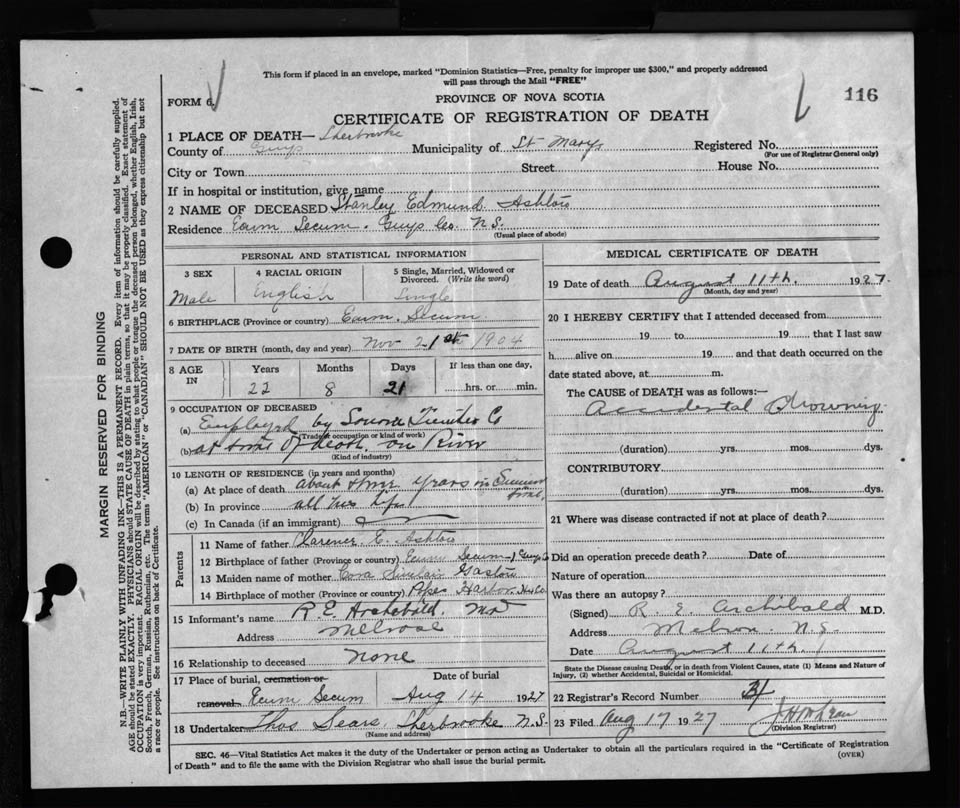 This form if placed in an envelope, marked "Dominion Statistics—Free, penalty for improper use $300," and properly addressed
will pass through the Mail "FREE"
FORM 6.
PROVINCE OF NOVA SCOTIA
116
CERTIFICATE OF REGISTRATION OF DEATH
1 PLACE OF DEATH— Sherbrooke
County of Guys Municipality of St Marys Registered No.
(For use of Registrar General only)
City or Town Street House No.
If in hospital or institution, give name
2 NAME OF DECEASED Stanley Edmund Ashton
Residence Ecum Secum. Guys Co. N.S.
(Usual place of abode)
PERSONAL AND STATISTICAL INFORMATION
3 SEX 4 RACIAL ORIGIN 5 Single, Married, Widowed or
Divorced. (Write the word)
Male English Single
6 BIRTHPLACE (Province or country) Ecum. Secum
7 DATE OF BIRTH (month, day and year) Nov 21st 1904
8 AGE IN Years Months Days If less than one day,
22 8 21 hrs. or min.
9 OCCUPATION OF DECEASED
(a) Employed by Sonora Timber Co
(Trade occupation or kind of work)
(b) at time of death. on River
(Kind of industry)
10 LENGTH OF RESIDENCE (in years and months)
(a) At place of death about three years in
(b) In province all his life
(c) In Canada (if an immigrant)
Parents
11 Name of father Clarence E. Ashton
12 Birthplace of father (Province or country) Ecum Secum Guys
13 Maiden name of mother Cora Sinclair Gaston
14 Birthplace of mother (Province or country) Popes Harbor Hx Co.
15 Informant's name R. E. Archibald. MD
Address Melrose
16 Relationship to deceased none
17 Place of burial, cremation or Date of burial
removal. Ecum Secum Aug 14 1927
18 Undertaker Thos Sears, Sherbrooke N.S.
(Name and address)
MEDICAL CERTIFICATE OF DEATH
19 Date of death August 11th. 1927.
(Month, day and year)
20 I HEREBY CERTIFY that I attended deceased from
19 to 19 that I last saw
h alive on 19 and that death occurred on the
date stated above, at m.
The CAUSE OF DEATH was as follows:—
Accidental Drowning
(duration) yrs. mos. dys.
CONTRIBUTORY
(duration) yrs. mos. dys.
21 Where was disease contracted if not at place of death?
Did an operation precede death? Date of
Nature of operation
Was there an autopsy?
(Signed) R. E. Archibald M.D.
Address Melrose. N.S.
Date August 11th.
State the Disease causing Death, or in death from Violent Causes, state (1) Means and Nature of
Injury, (2) whether Accidental, Suicidal or Homicidal.
22 Registrar's Record Number 31
23 Filed Aug 17 1927
(Division Registrar)
SEC. 46—Vital Statistics Act makes it the duty of the Undertaker or person acting as Undertaker to obtain all the particulars required in the "Certificate of Registration
of Death" and to file the same with the Division Registrar who shall issue the burial permit.
(OVER)
MARGIN RESERVED FOR BINDING
N.B.—WRITE PLAINLY WITH UNFADING INK—THIS IS A PERMANENT RECORD. Every item of information should be carefully supplied.
AGE should be stated EXACTLY. PHYSICIANS should STATE CAUSE OF DEATH in plain terms, so that it may be properly classified. Exact statement of
OCCUPATION is very important. RACIAL ORIGIN will be described by stating to what people or tongue the deceased person belonged, whether English, Irish,
Scotch, French, German, Russian, Ruthenian, etc. The terms "AMERICAN" or "CANADIAN" SHOULD NOT BE USED as they express citizenship but not
a race or people. See instructions on back of Certificate.